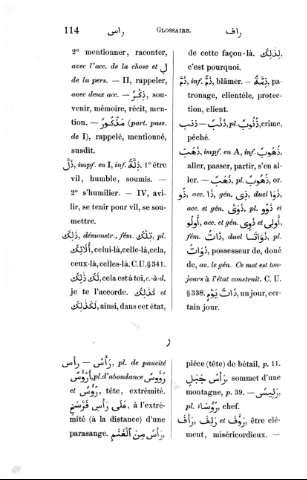 114 راس GLOSSAIRE. راف
2° mentionner, raconter,
avec l'acc. de la chose et لِ
de la pers. — II, rappeler,
avec deux acc. — ذِكْرٌ, sou-
venir, mémoire, récit, men-
tion. — مَذْكُورٌ (part. pass.
de I), rappelé, mentionné,
susdit.
ذَلَّ, impf. en I, inf. ذِلَّةٌ, 1° être
vil, humble, soumis. —
2° s'humilier. — IV, avi-
lir, se tenir pour vil, se sou-
mettre.
ذٰلِكَ, fém. تِلْكَ, démonstr.,
أُولٰئِكَ, celui-là, celle-là, cela,
ceux-là, celles-là, C. U. § 341.
ذٰلِكَ لَكَ, cela est à toi, c.-à-d.
je te l'accorde. كَذٰلِكَ et
فَكَذٰلِكَ, ainsi, dans cet état,
de cette façon-là. لِذٰلِكَ,
c'est pourquoi.
ذَمَّ, inf. ذَمٌّ, blâmer. — ذِمَّةٌ, pa-
tronage, clientèle, protec-
tion, client.
ذنب — ذَنْبٌ, pl. ذُنُوبٌ, crime,
péché.
ذَهَبَ, impf. en A, inf. ذَهَابٌ,
aller, passer, partir, s'en al-
ler. — ذَهَبٌ, pl. ذُهُوبٌ, or.
ذُو, acc. ذَا, gén. ذِي, duel ذَوَا,
pl. ذَوُو et acc. et gén. ذَوِي et
أُولُو, acc. et gén. أُولِي et
fém. ذَاتٌ, duel ذَوَاتَا, pl.
ذَوَاتٌ, possesseur de, doué
de, av. le gén. Ce mot est tou-
jours à l'état construit. C. U.
§ 338. ذَاتَ يَوْمٍ, un jour, cer-
tain jour.
ر
رأس — رَأْسٌ, pl. de paucité
أَرْؤُسٌ, pl. d'abondance رُؤُوسٌ
et رُؤْسٌ, tête, extrémité.
عَلَى رَأْسِ فَرْسَخٍ, à l'extré-
mité (à la distance) d'une
parasange. رَأْسٌ مِنَ الْغَنَمِ,
pièce (tête) de bétail, p. 11.
رَأْسُ جَبَلٍ, sommet d'une
montagne, p. 39. — رَئِيسٌ,
pl. رُؤَسَاءُ, chef.
رَأَفَ, رَئِفَ et رَؤُفَ, être clé-
ment, miséricordieux. —